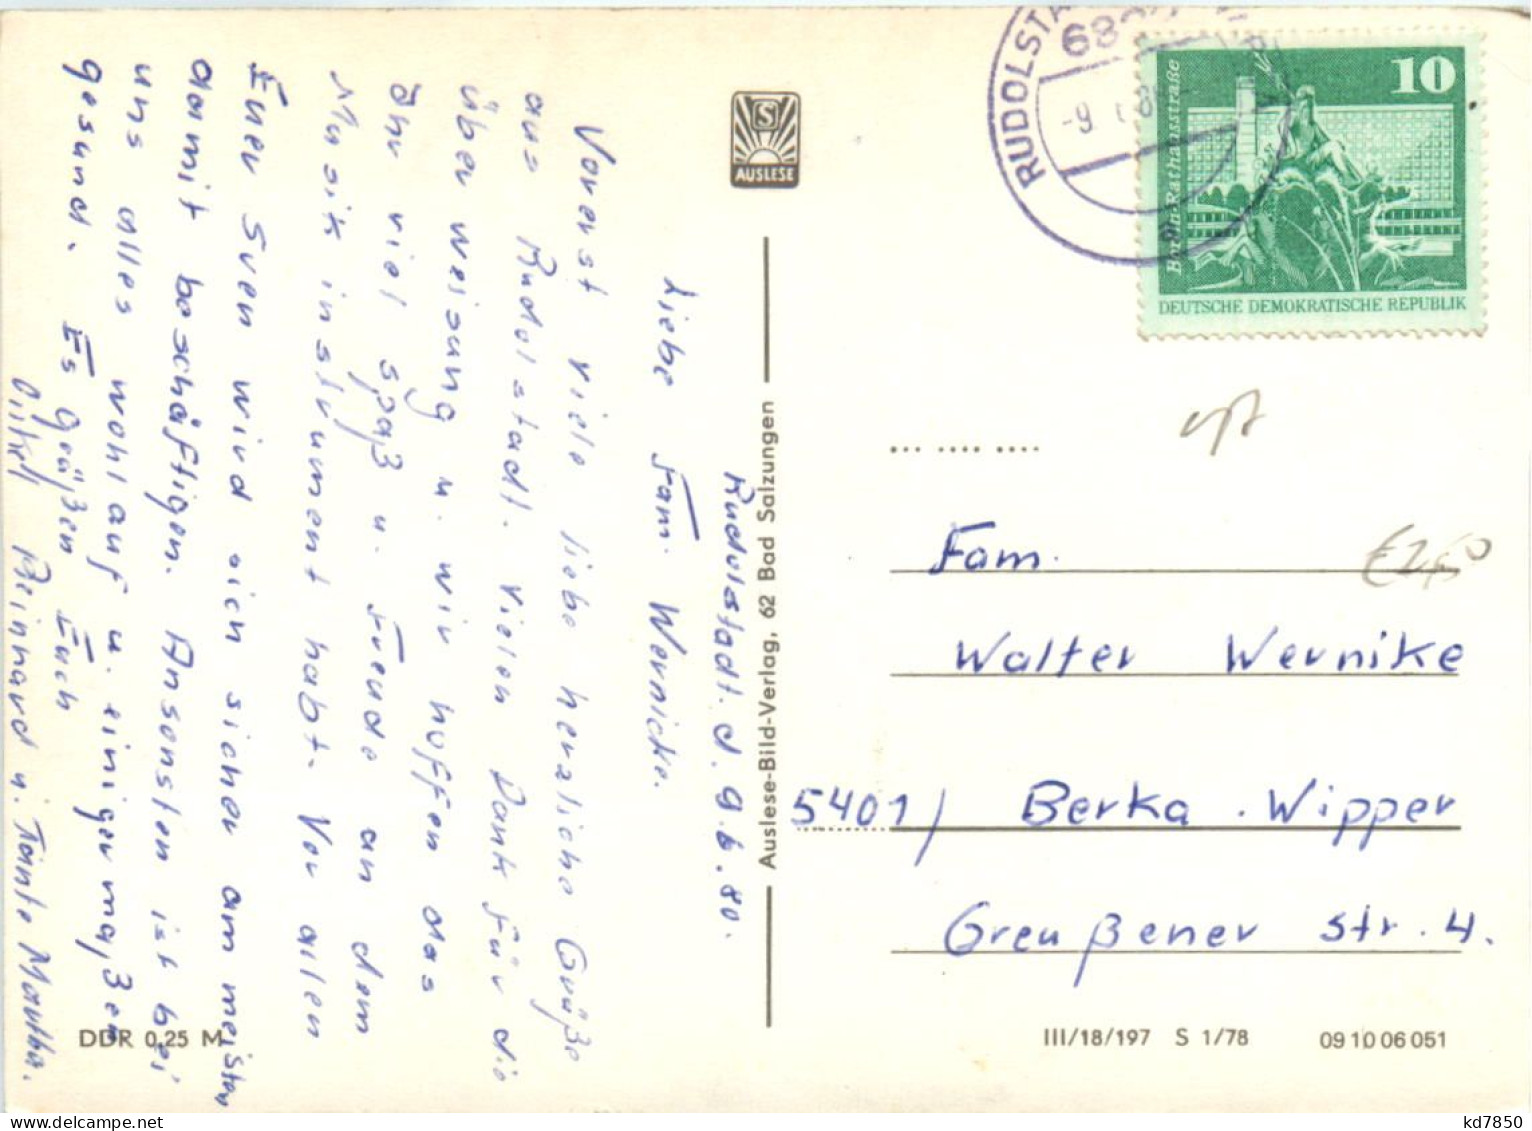 Rudolstadt. d. 9.6.80.
Liebe Fam. Wernicke.
Vorerst viele liebe herzliche Grüße
aus Rudolstadt. Vielen Dank für die
überweisung u. wir hoffen das
Ihr viel spaß u. Freude an dem
Musik instument habt. Vor allen
Euer Sven wird sich sicher am meisten
damit beschäftigen. Ansonsten ist bei
uns alles wohlauf u. einigermaßen
gesund. Es grüßen Euch
Onkel Reinhard u. Tante Martha.
DDR 0,25 M
S
AUSLESE
Auslese-Bild-Verlag, 62 Bad Salzungen
RUDOLSTA
-9
10
Berlin-Rathausstraße
DEUTSCHE DEMOKRATISCHE REPUBLIK
€2,50
Fam.
Walter Wernike
5401) Berka . Wipper
Greußener Str. 4.
III/18/197 S 1/78 09 10 06 051
kd7850